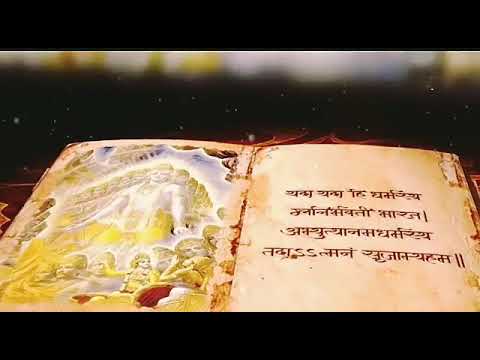 यदा यदा हि धर्मस्य
ग्लानिर्भवती भारत।
अभ्युत्थानमधर्मस्य
तदाऽऽत्मनं सृजाम्यहम॥